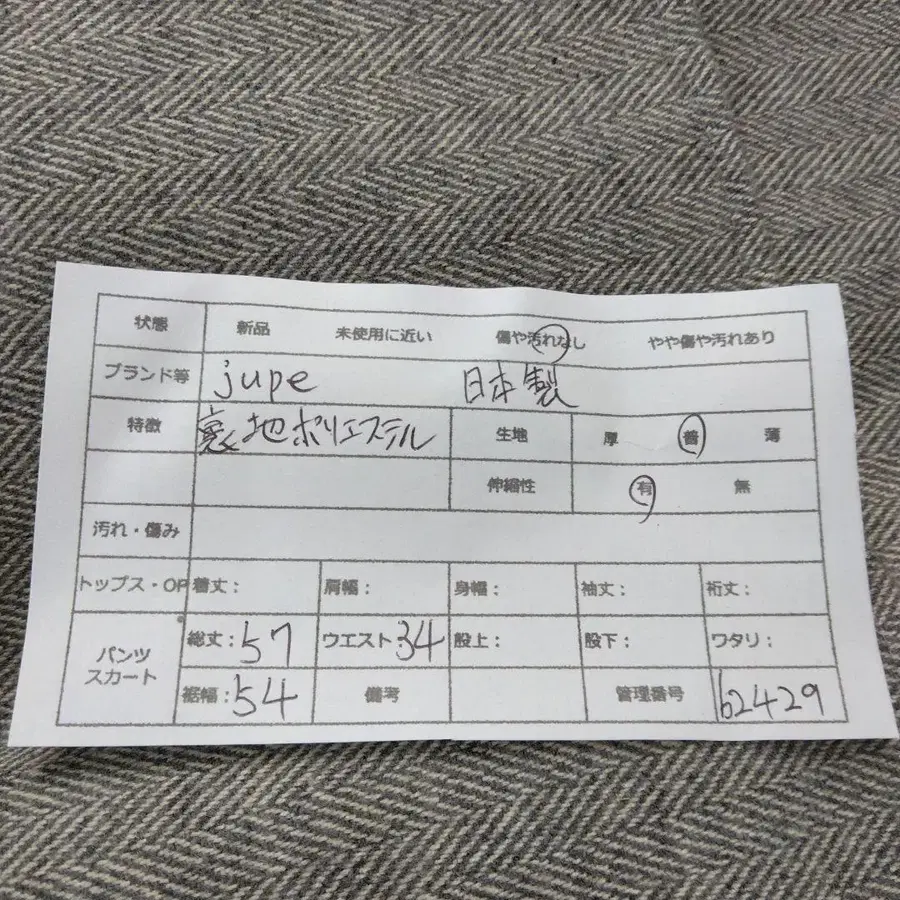 状態 新品 未使用に近い 傷や汚れなし やや傷や汚れあり
ブランド等 jupe 日本製
特徴 裏地ポリエステル 生地 厚 普 薄
伸縮性 有 無
汚れ・傷み
トップス・OP 着丈： 肩幅： 身幅： 袖丈： 裄丈：
パンツ スカート 総丈：57 ウエスト：34 股上： 股下： ワタリ：
裾幅：54 備考 管理番号 62429